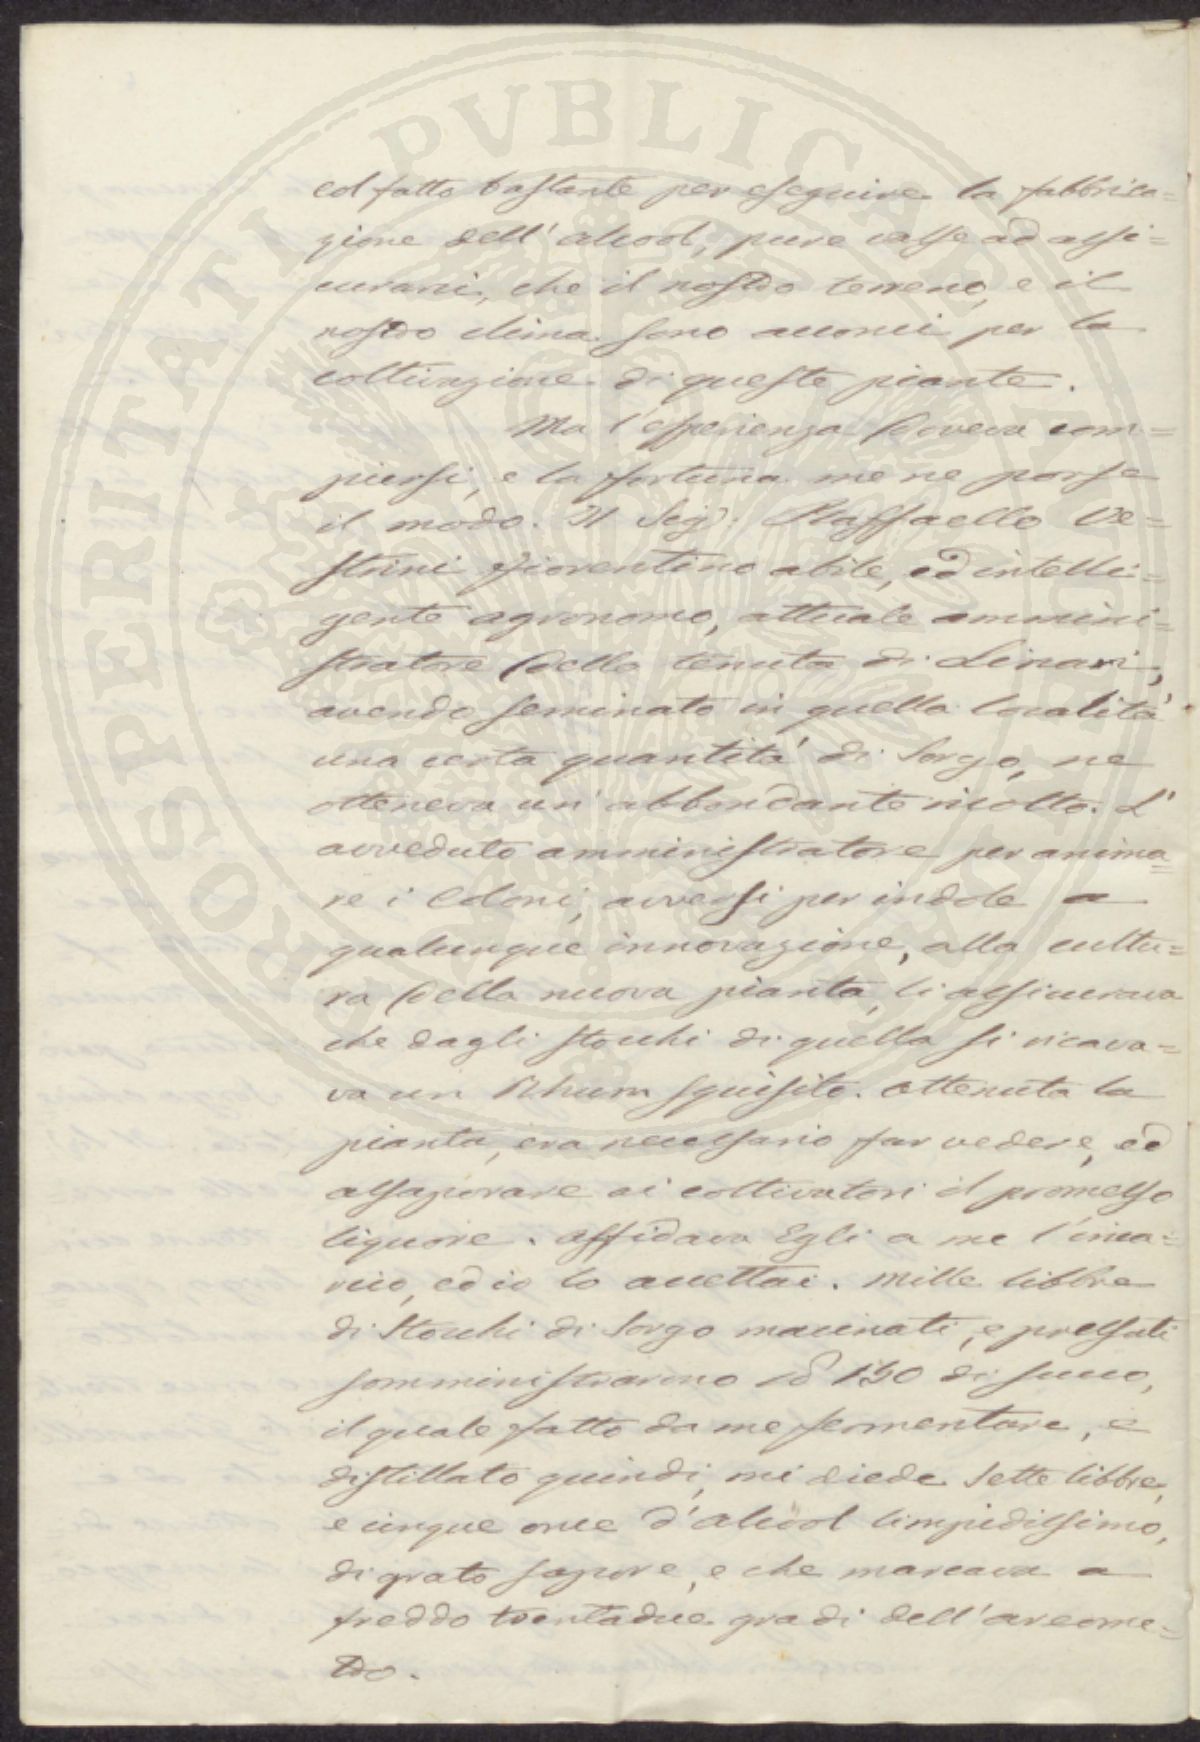 PROSPERITATI PVBLICAE AVGENDAE
col fatto bastante per eseguire la fabbrica=
zione dell' alcool, pure valse ad assi=
curarci, che il nostro terreno, e il
nostro clima sono acconci per la
coltivazione di queste piante.
Ma l'esperienza doveva com=
piersi, e la fortuna me ne porse
il modo. Il Sigr. Raffaello Ve=
strini fiorentino abile, ed intelli=
gente agronomo, attuale ammini=
stratore della tenuta di Linari,
avendo seminato in quella località
una certa quantità di Sorgo, ne
otteneva un' abbondante ricolto. L'
avveduto amministratore per anima=
re i Coloni, avversi per indole a
qualunque innovazione, alla cultu=
ra della nuova pianta, li assicurava
che dagli stocchi di quella si ricava=
va un Rhum squisito. Ottenuta la
pianta, era necessario far vedere, ed
assaporare ai coltivatori il promesso
liquore. Affidava Egli a me l'inca=
rico, ed io lo accettai. Mille libbre
di Stocchi di Sorgo macinati, e pressati
somministrarono 150 di succo,
il quale fatto da me fermentare, e
distillato quindi, mi diede Sette libbre,
e cinque once d'alcool limpidissimo,
di grato sapore, e che marcava a
freddo trentadue gradi dell'areome=
tro.